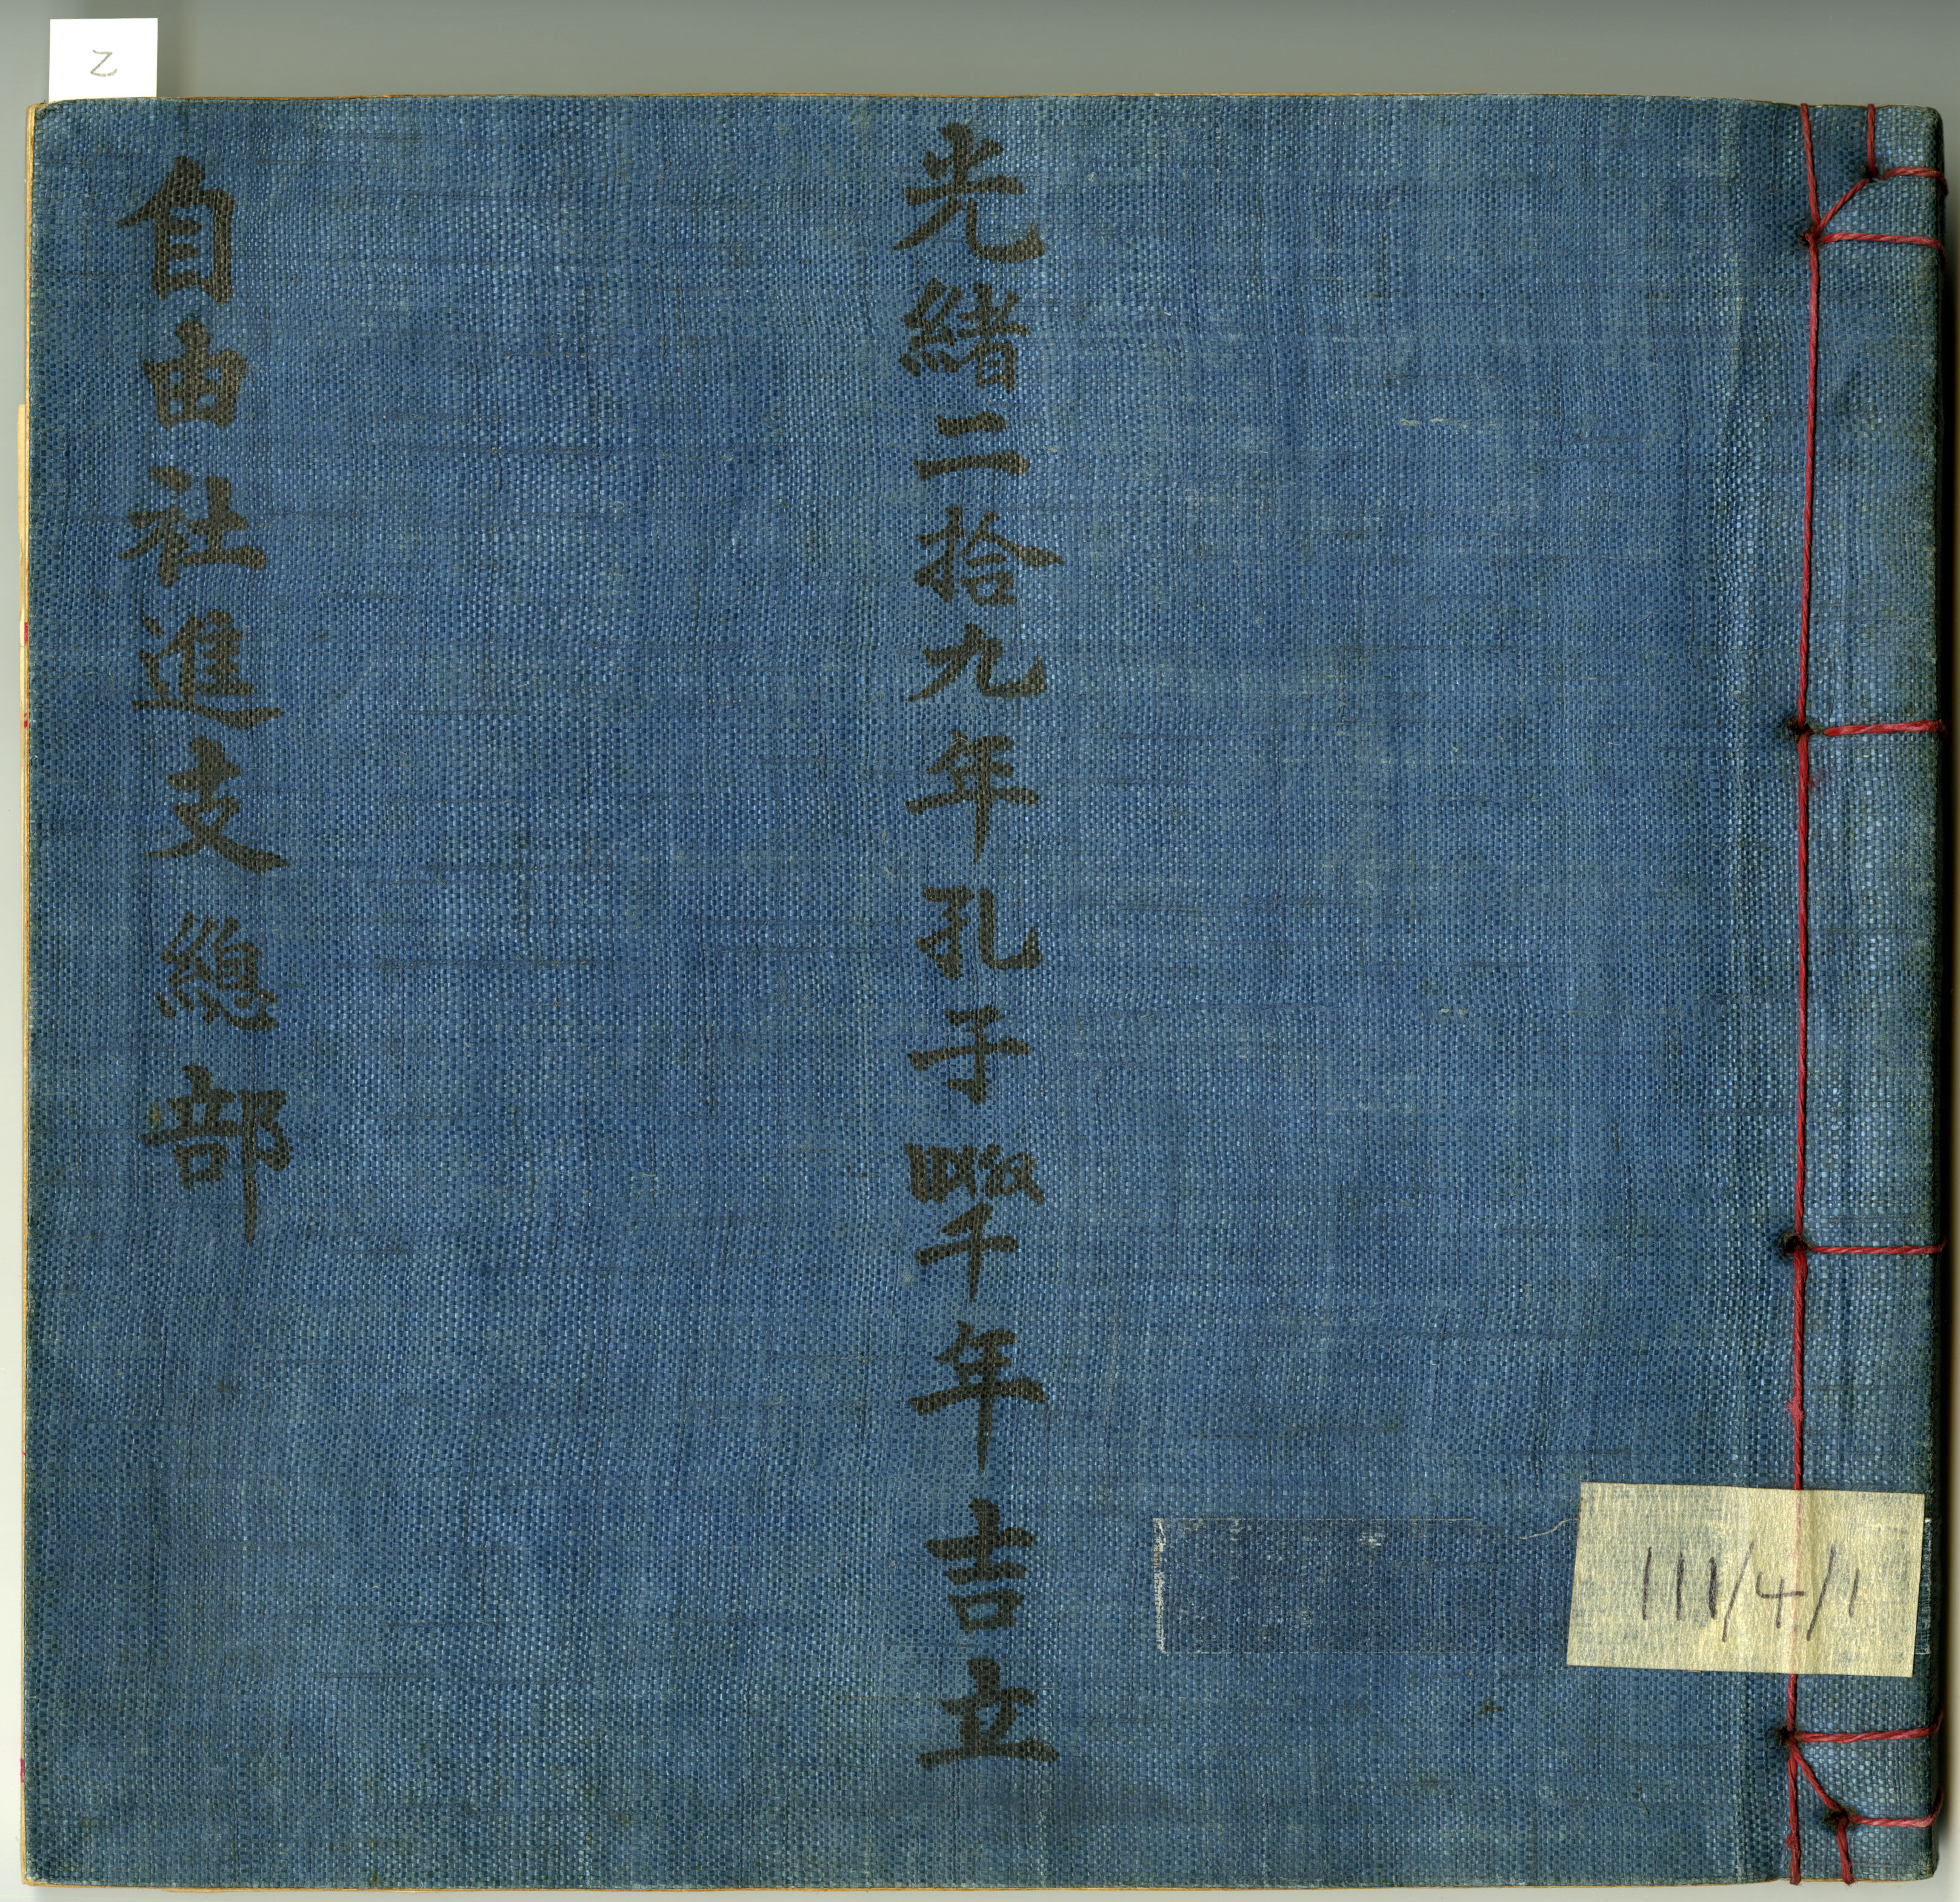 2
光緒二拾九年孔子〢〤〥〤千年吉立
自由社進支總部
111/4/1